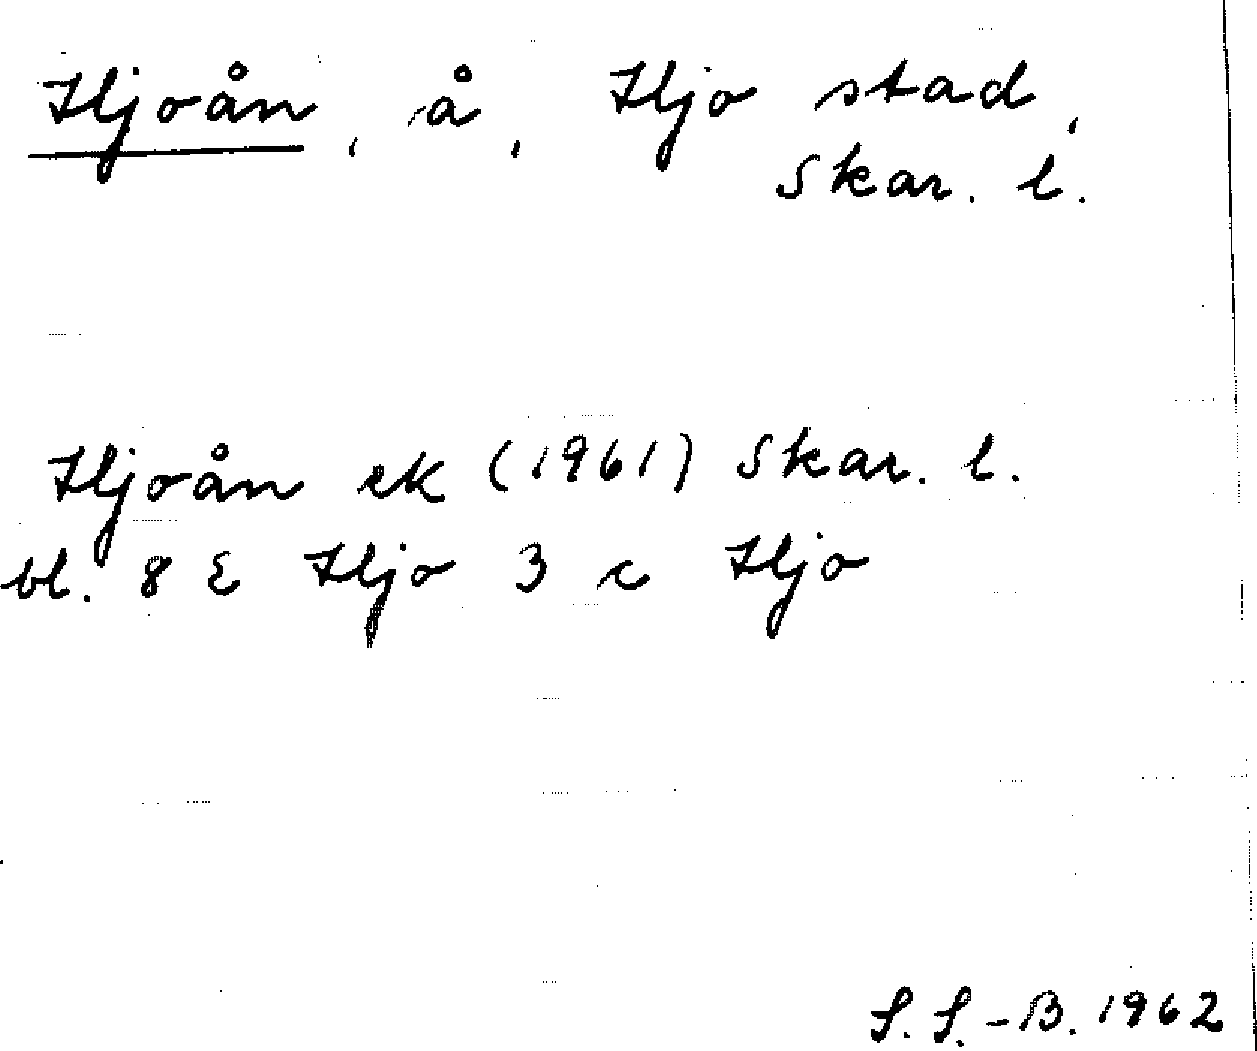 Hjoån, å, Hjo stad,
Skar. l.
Hjoån ek (1961) Skar. l.
bl. 8 E Hjo 3 c Hjo
S. S.-B. 1962